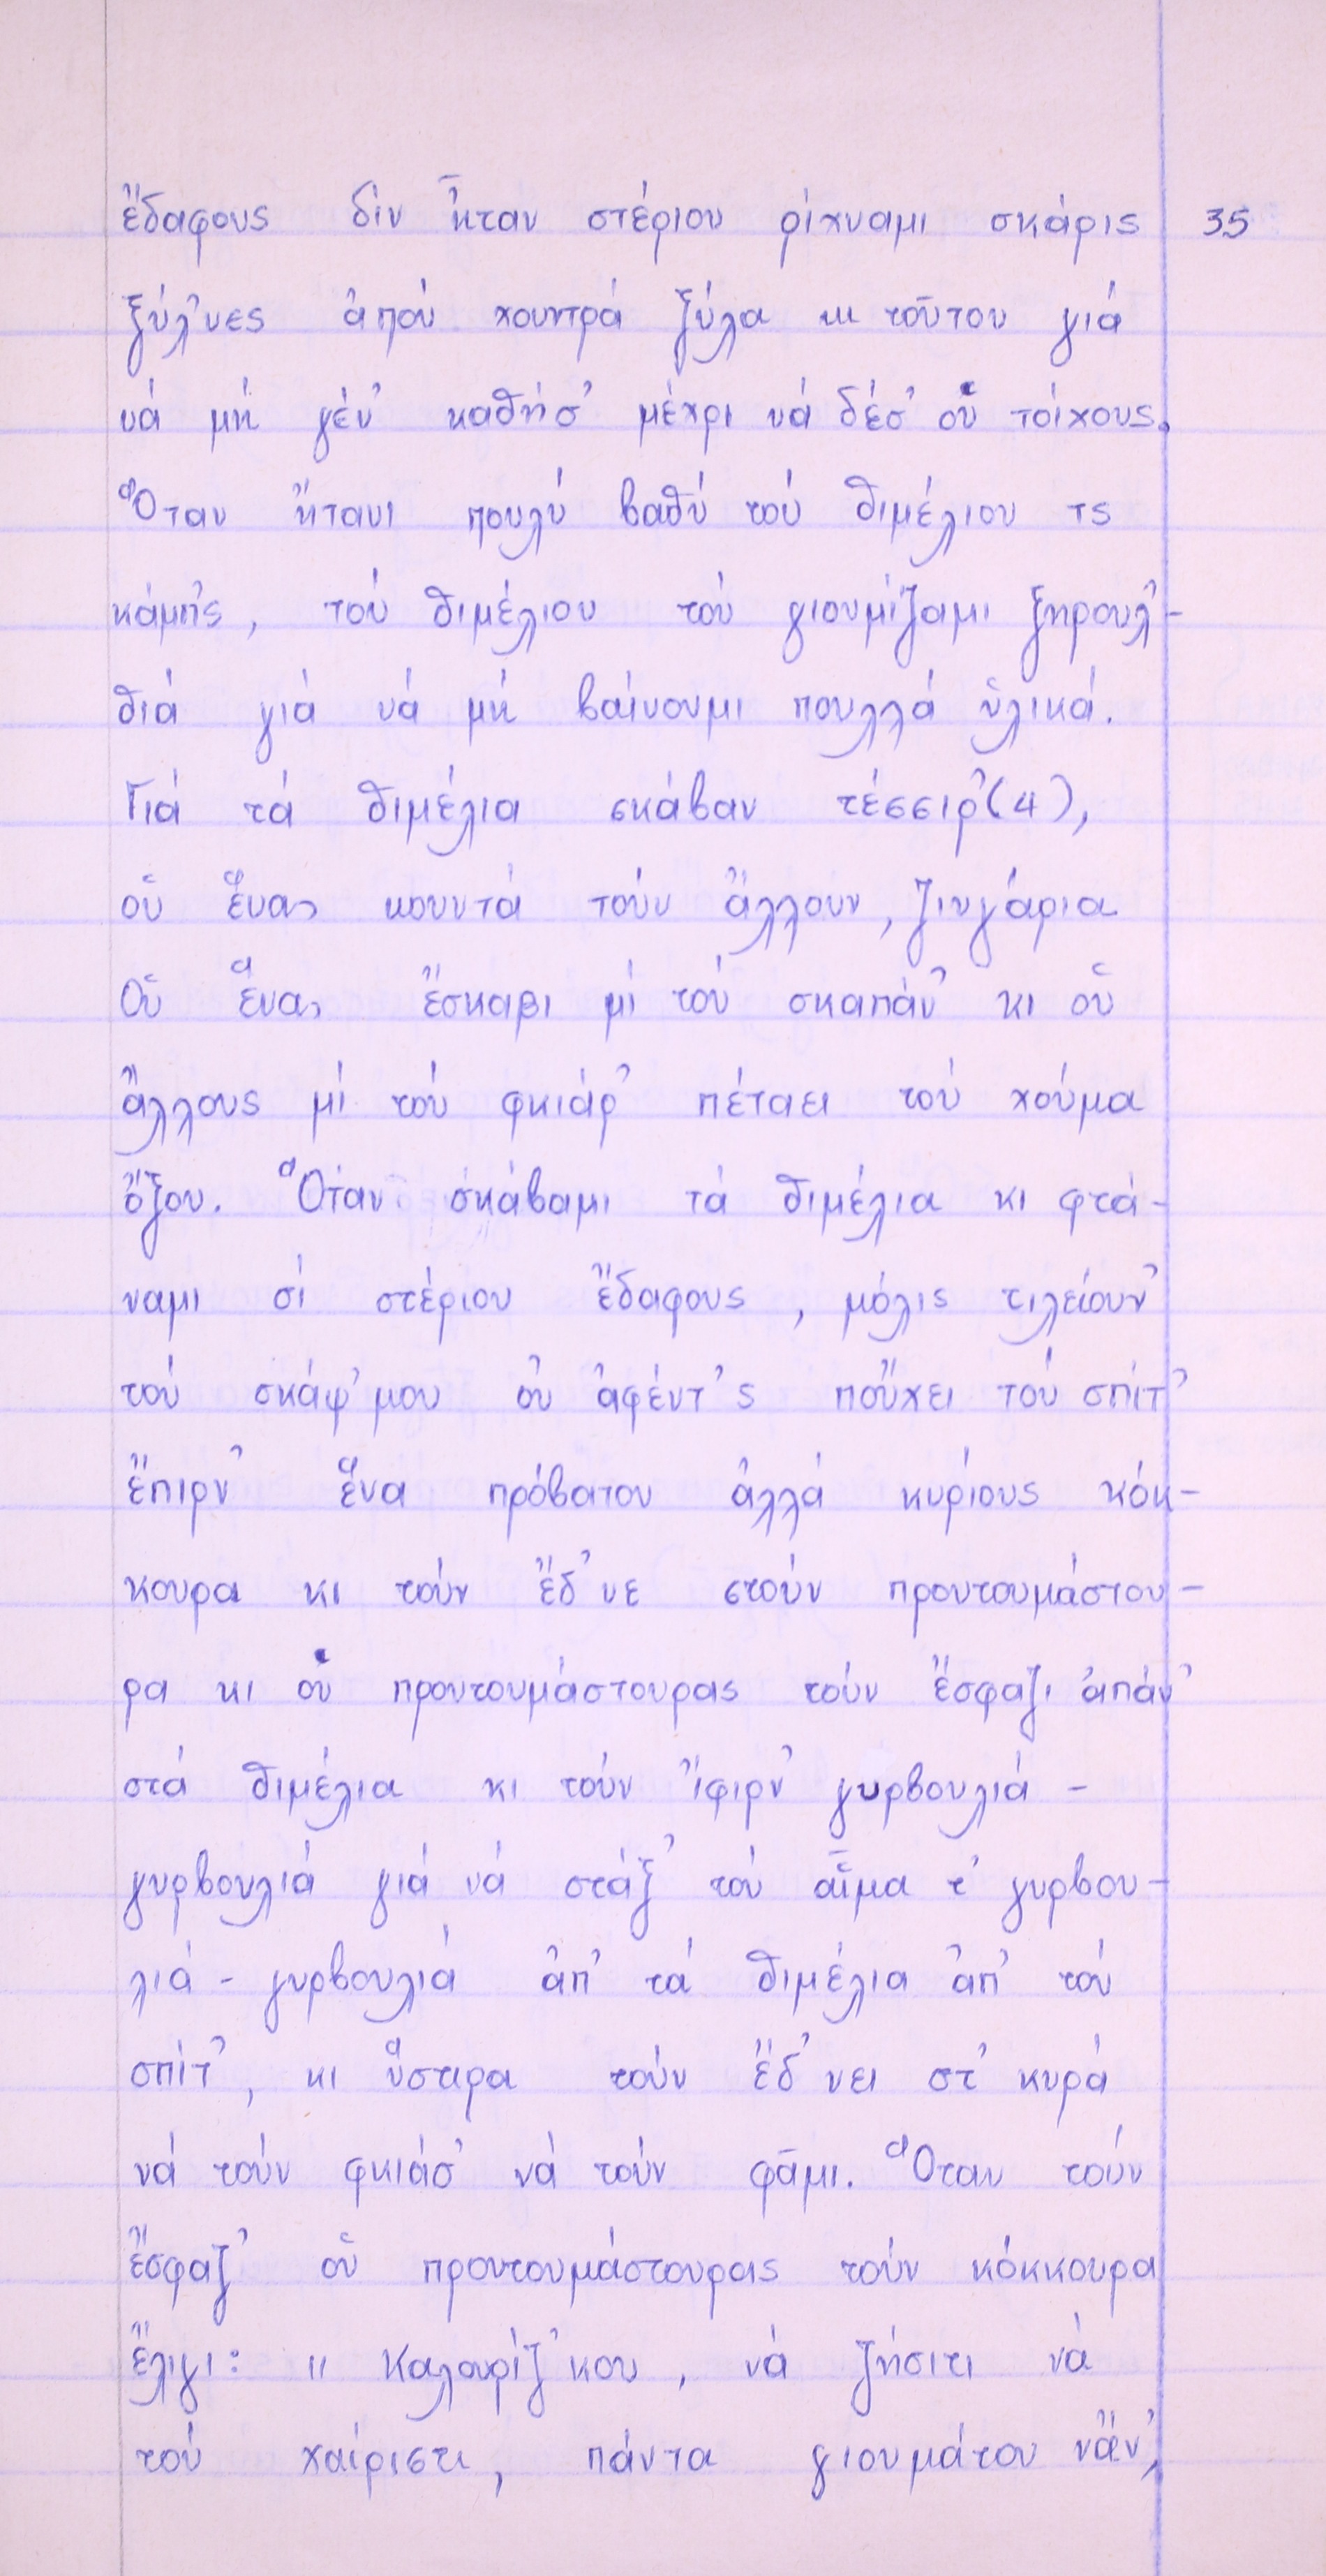 ἔδαφους δὶν ἦταν στέριου ρίχναμι σκάρις 35
ξύλ'νες ἀπού χουντρά ξύλα κι τοῦτου γιά
νά μή γέν' καθήσ' μέχρι νά δέσ' οὑ τοίχους.
Ὅταν ἤτανι πουλύ βαθύ τού θιμέλιου τς
κάμ'ς, τού θιμέλιου τού γιουμίζαμι ξηρουλ'-
θιά γιά νά μή βαίνουμι πουλλά ὑλικά.
Γιά τά θιμέλια σκάβαν τέσσιρ'(4),
οὑ ἕνας κουντά τούν ἄλλουν, ζιυγάρια
Οὑ ἕνας ἔσκαβι μί τού σκαπάν' κι οὑ
ἄλλους μί τού φκιάρ' πέταει τού χούμα
ὄξου. Ὅταν σκάβαμι τά θιμέλια κι φτά-
ναμι σί στέριου ἔδαφους, μόλις τιλείουν'
τού σκάψ'μου οὑ ἀφέντ'ς πούχει τού σπίτ'
ἔπιρν' ἕνα πρόβατου ἀλλά κυρίους κόκ-
κουρα κι τούν ἔδ'νε στούν προυτουμάστου-
ρα κι οὑ προυτουμάστουρας τούν ἔσφαζι ἀπάν'
στά θιμέλια κι τούν ἴφιρν' γυρβουλιά -
γυρβουλιά γιά νά στάξ' τού αἷμα τ' γυρβου-
λιά - γυρβουλιά ἀπ' τά θιμέλια ἀπ' τού
σπίτ', κι ὕστιρα τούν ἔδ'νει στ' κυρά
νά τούν φκιάσ' νά τούν φᾶμι. Ὅταν τούν
ἔσφαζ' οὑ προυτουμάστουρας τούν κόκκουρα
ἔλιγι: " Καλουρίζ'κου, νά ζήσιτι νά
τού χαίριστι, πάντα γιουμάτου νἄν',